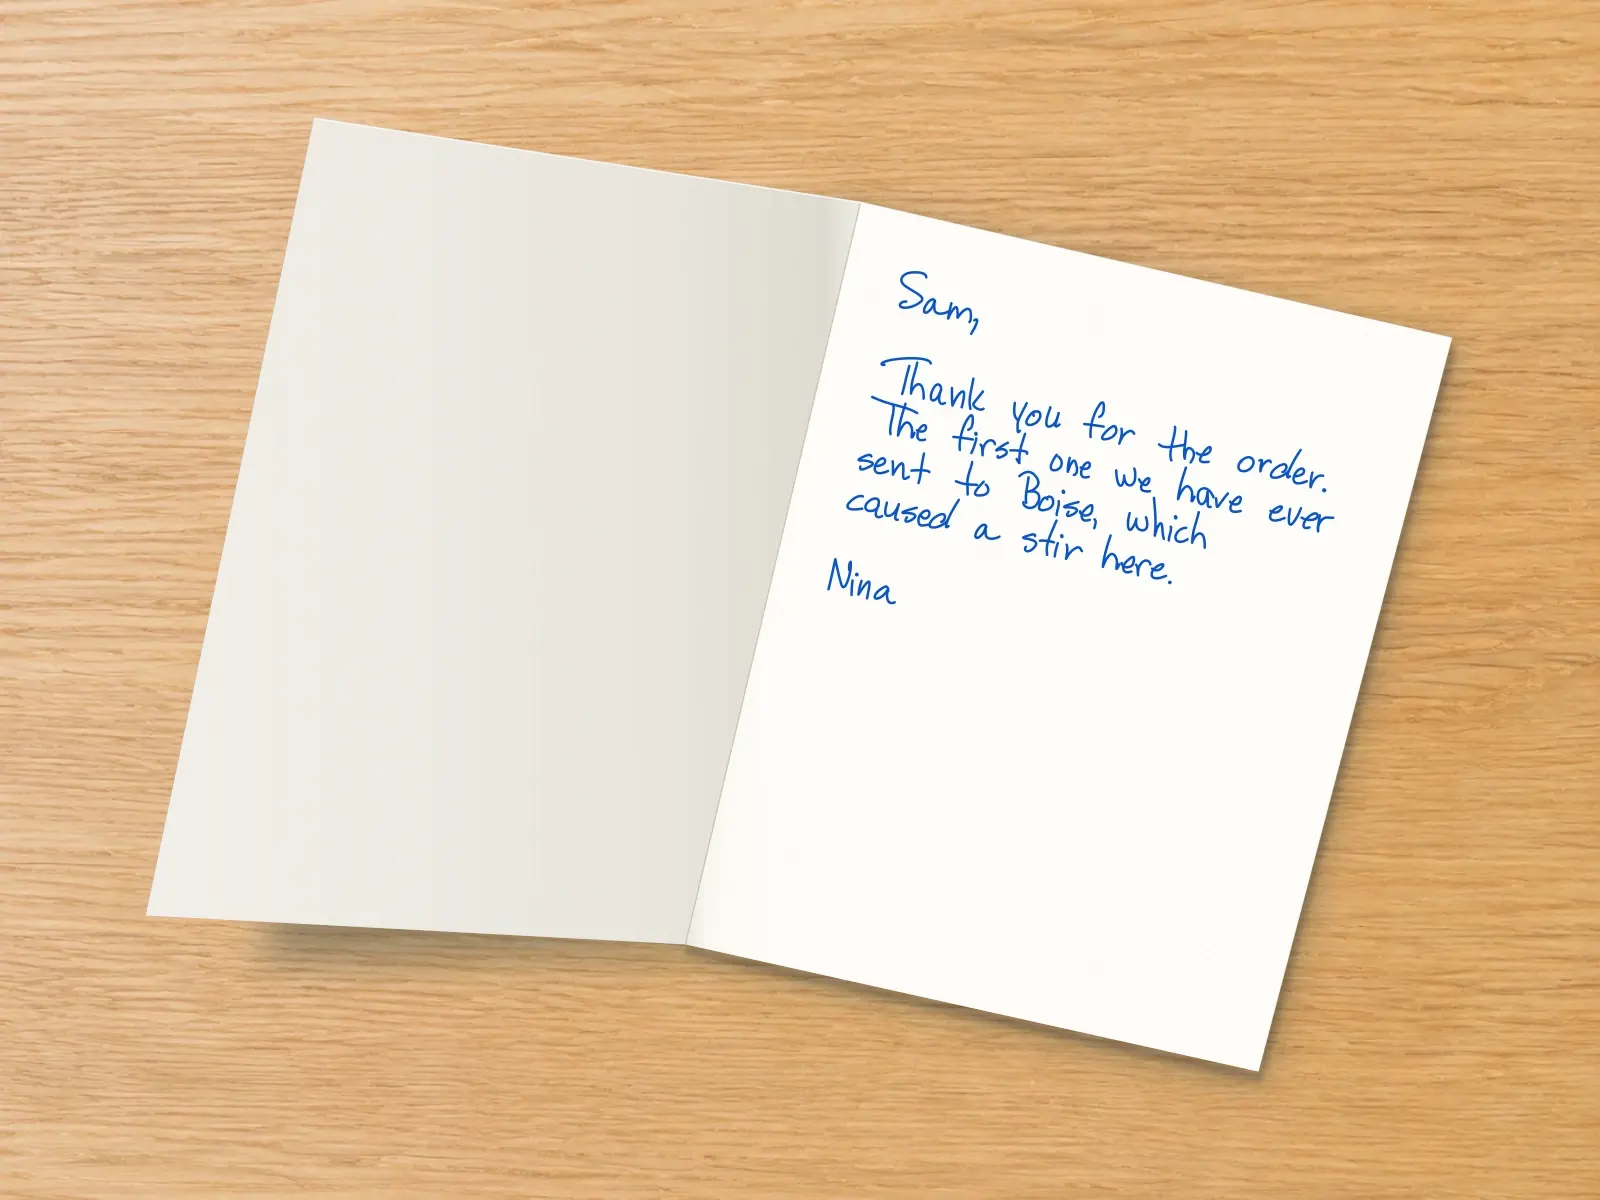 Sam,
Thank you for the order.
The first one we have ever
sent to Boise, which
caused a stir here.
Nina